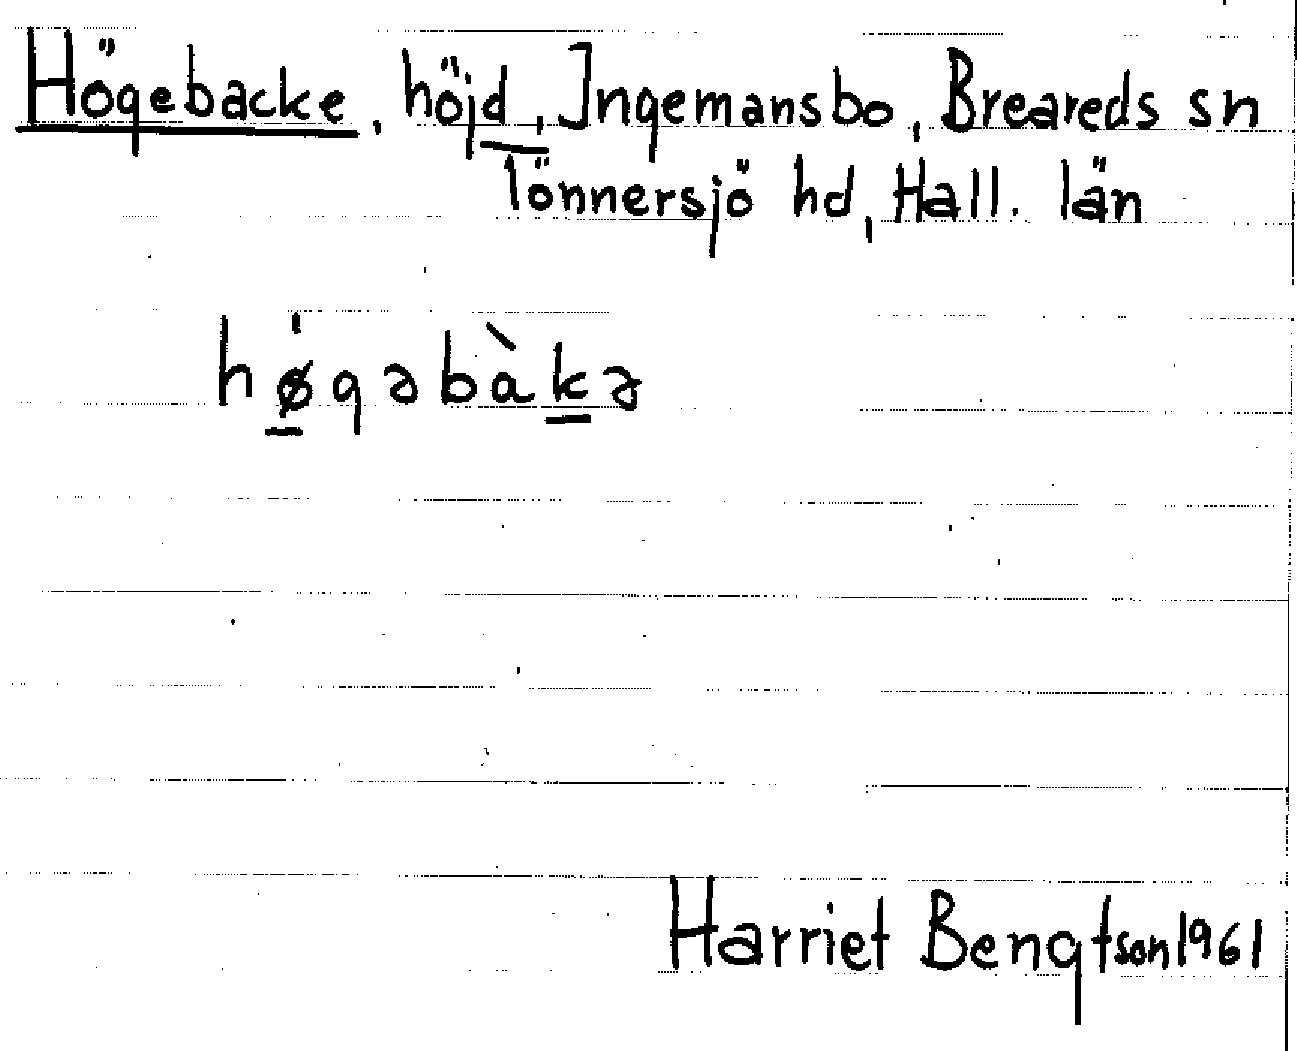 Högebacke, höjd, Ingemansbo, Breareds sn
Tönnersjö hd, Hall. län
hǿ̲gəbàk̲ə
Harriet Bengtson 1961